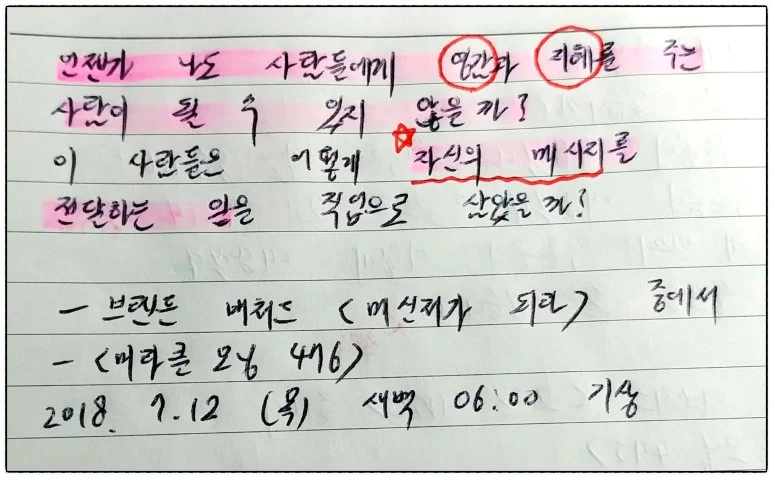 언젠가 나도 사람들에게 영감과 지혜를 주는
사람이 될 수 있지 않을까?
이 사람들은 어떻게 자신의 메시지를
전달하는 일을 직업으로 삼았을까?
- 브렌든 버처드 <메신저가 되라> 중에서
- <미라클 모닝 476>
2018. 7.12 (목) 새벽 06:00 기상